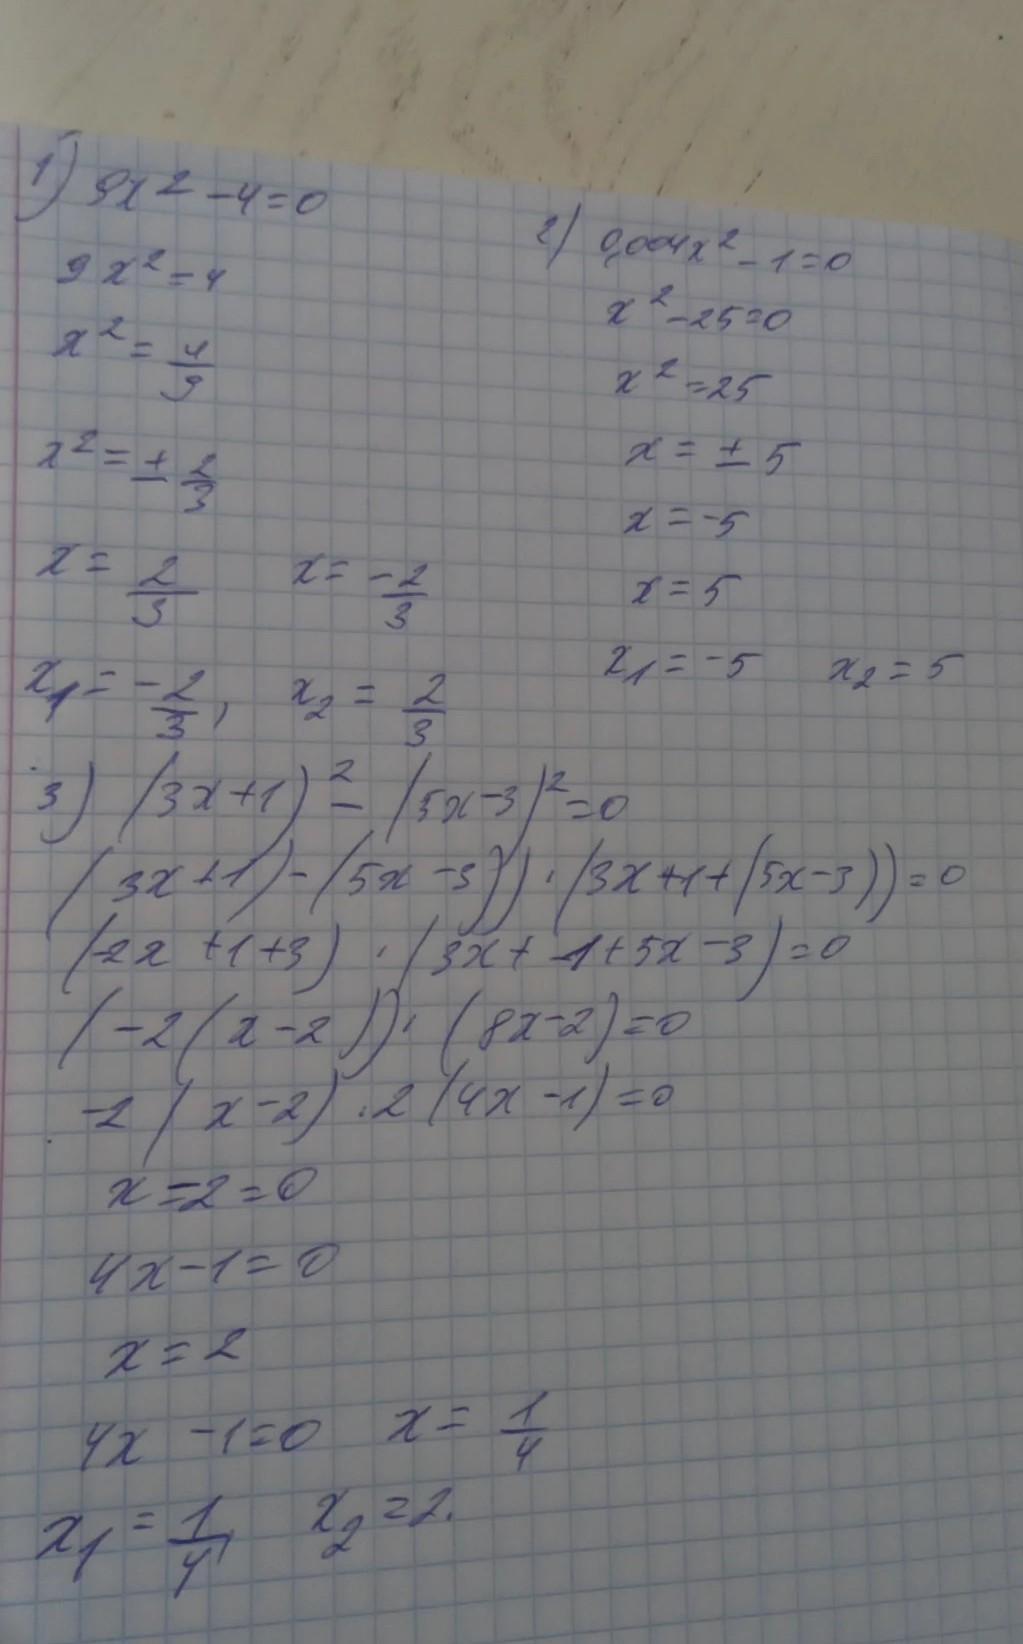 1) 9x² - 4 = 0
9x² = 4
x² = 4/9
x² = ± 2/3
x = 2/3    x = -2/3
x₁ = -2/3,    x₂ = 2/3
2) 0,004x² - 1 = 0
x² - 25 = 0
x² = 25
x = ± 5
x = -5
x = 5
x₁ = -5    x₂ = 5
3) (3x+1)² - (5x-3)² = 0
(3x+1) - (5x-3)) · (3x+1+(5x-3)) = 0
(-2x+1+3) · (3x+ -1+5x-3) = 0
(-2(x-2)) · (8x-2) = 0
-2(x-2) · 2(4x-1) = 0
x-2 = 0
4x-1 = 0
x = 2
4x -1 = 0    x = 1/4
x₁ = 1/4,    x₂ = 2.